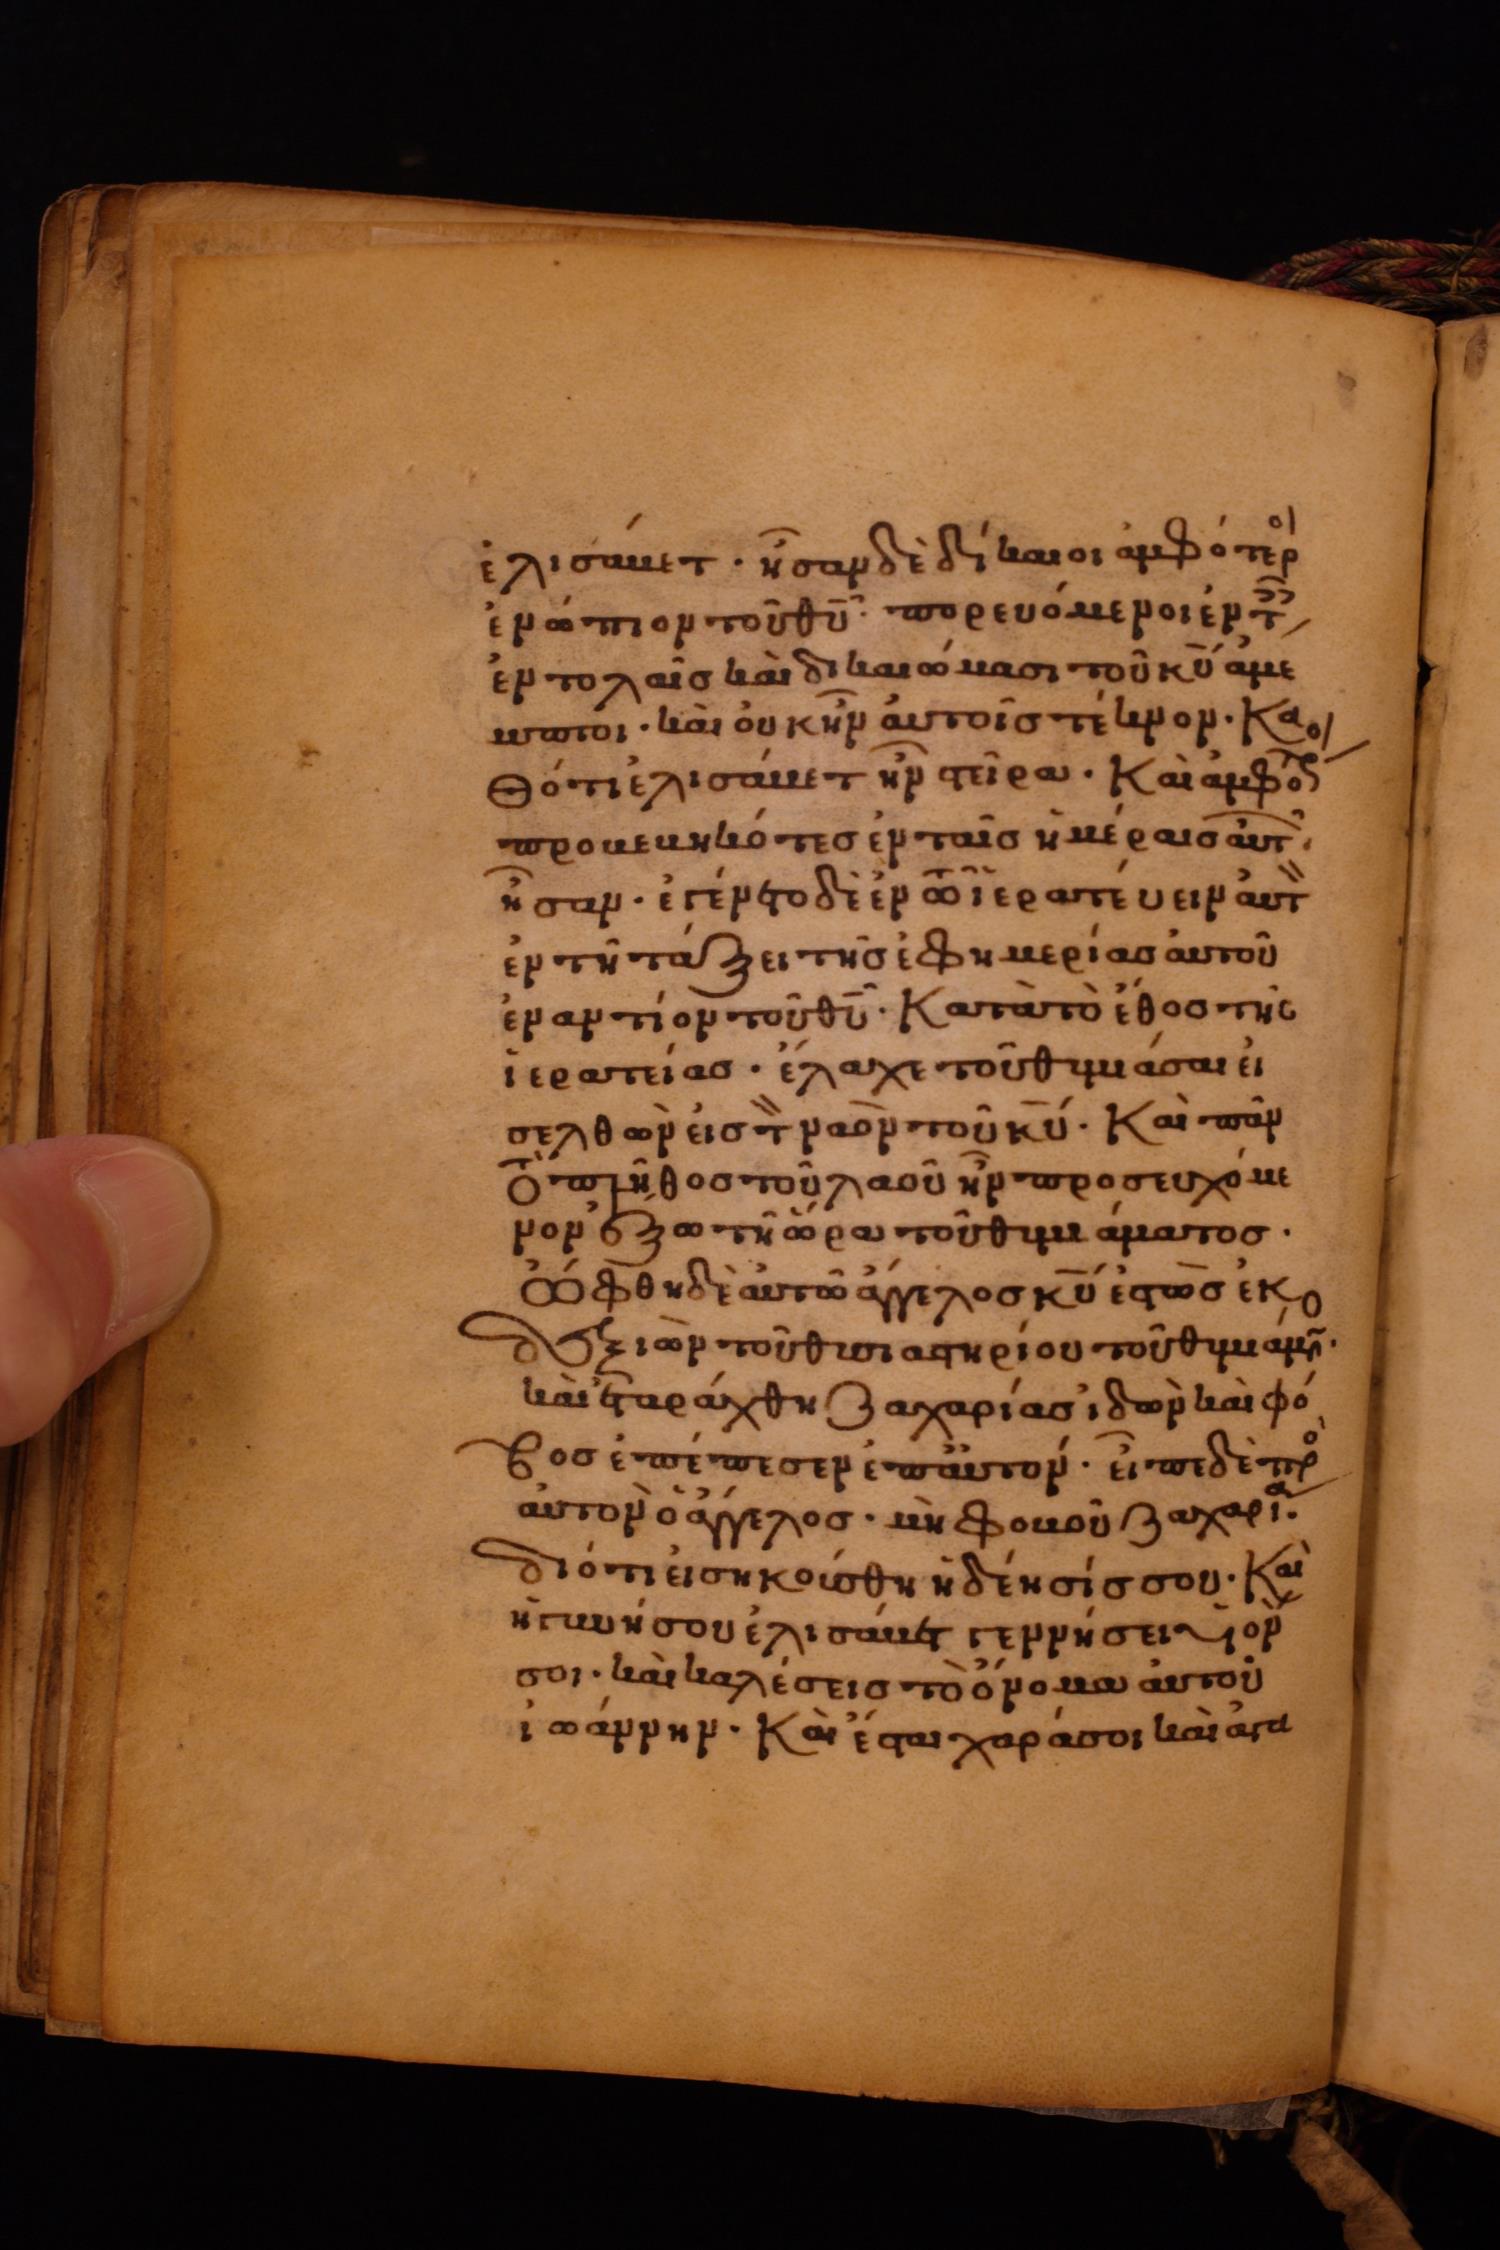 ἐλισάβετ · ἦσαν δὲ δίκαιοι ἀμφότερ
ἐνώπιον τοῦ θῦ · πορευόμενοι ἐν τ
ἐντολαῖσ καὶ δικαιώμασι τοῦ κῦ ἄμε
μπτοι · καὶ οὐκ ἦν ἀυτοῖσ τέκνον · Κα
Θότι ἐλισάβετ ἦν στεῖρα · Καὶ ἀμφό
προβεβηκότεσ ἐν ταῖσ ἡμέραισ ἀυτ
ἦσαν · ἐγένετο δὲ ἐν τῶ ἱερατέυειν ἀυτ
ἐν τῆ τάξει τῆσ ἐφημερίασ ἀυτοῦ
ἐναντίον τοῦ θῦ · Κατὰ τὸ ἔθοσ τῆσ
ἱερατείασ · ἔλαχε τοῦ θυμιάσαι ἐι
σελθὼν ἐισ τ ναὸν τοῦ κῦ · Καὶ πᾶν
τὸ πλῆθοσ τοῦ λαοῦ ἦν προσευχόμε
νον ἔξω τῆ ὥρα τοῦ θυμιάματοσ ·
Ὤφθη δὲ ἀυτῶ ἄγγελοσ κῦ ἑστὼσ ἐκ
δεξιῶν τοῦ θυσιαστηρίου τοῦ θυμιάμ ·
καὶ ἐταράχθη Ζαχαρίασ ἰδὼν καὶ φό
βοσ ἐπέπεσεν ἐπ ἀυτόν · εἶπε δὲ πρ
ἀυτὸν ὁ ἄγγελοσ · μὴ φοβοῦ Ζαχαρία ·
διότι ἐισηκούσθη ἡ δέησίσ σου · Καὶ
ἡ γυνή σου ἐλισάβετ γεννήσει υἱὸν
σοι · καὶ καλέσεισ τὸ ὄνομα ἀυτοῦ
ἰωάννην · Καὶ ἔσται χαρά σοι καὶ ἀγα